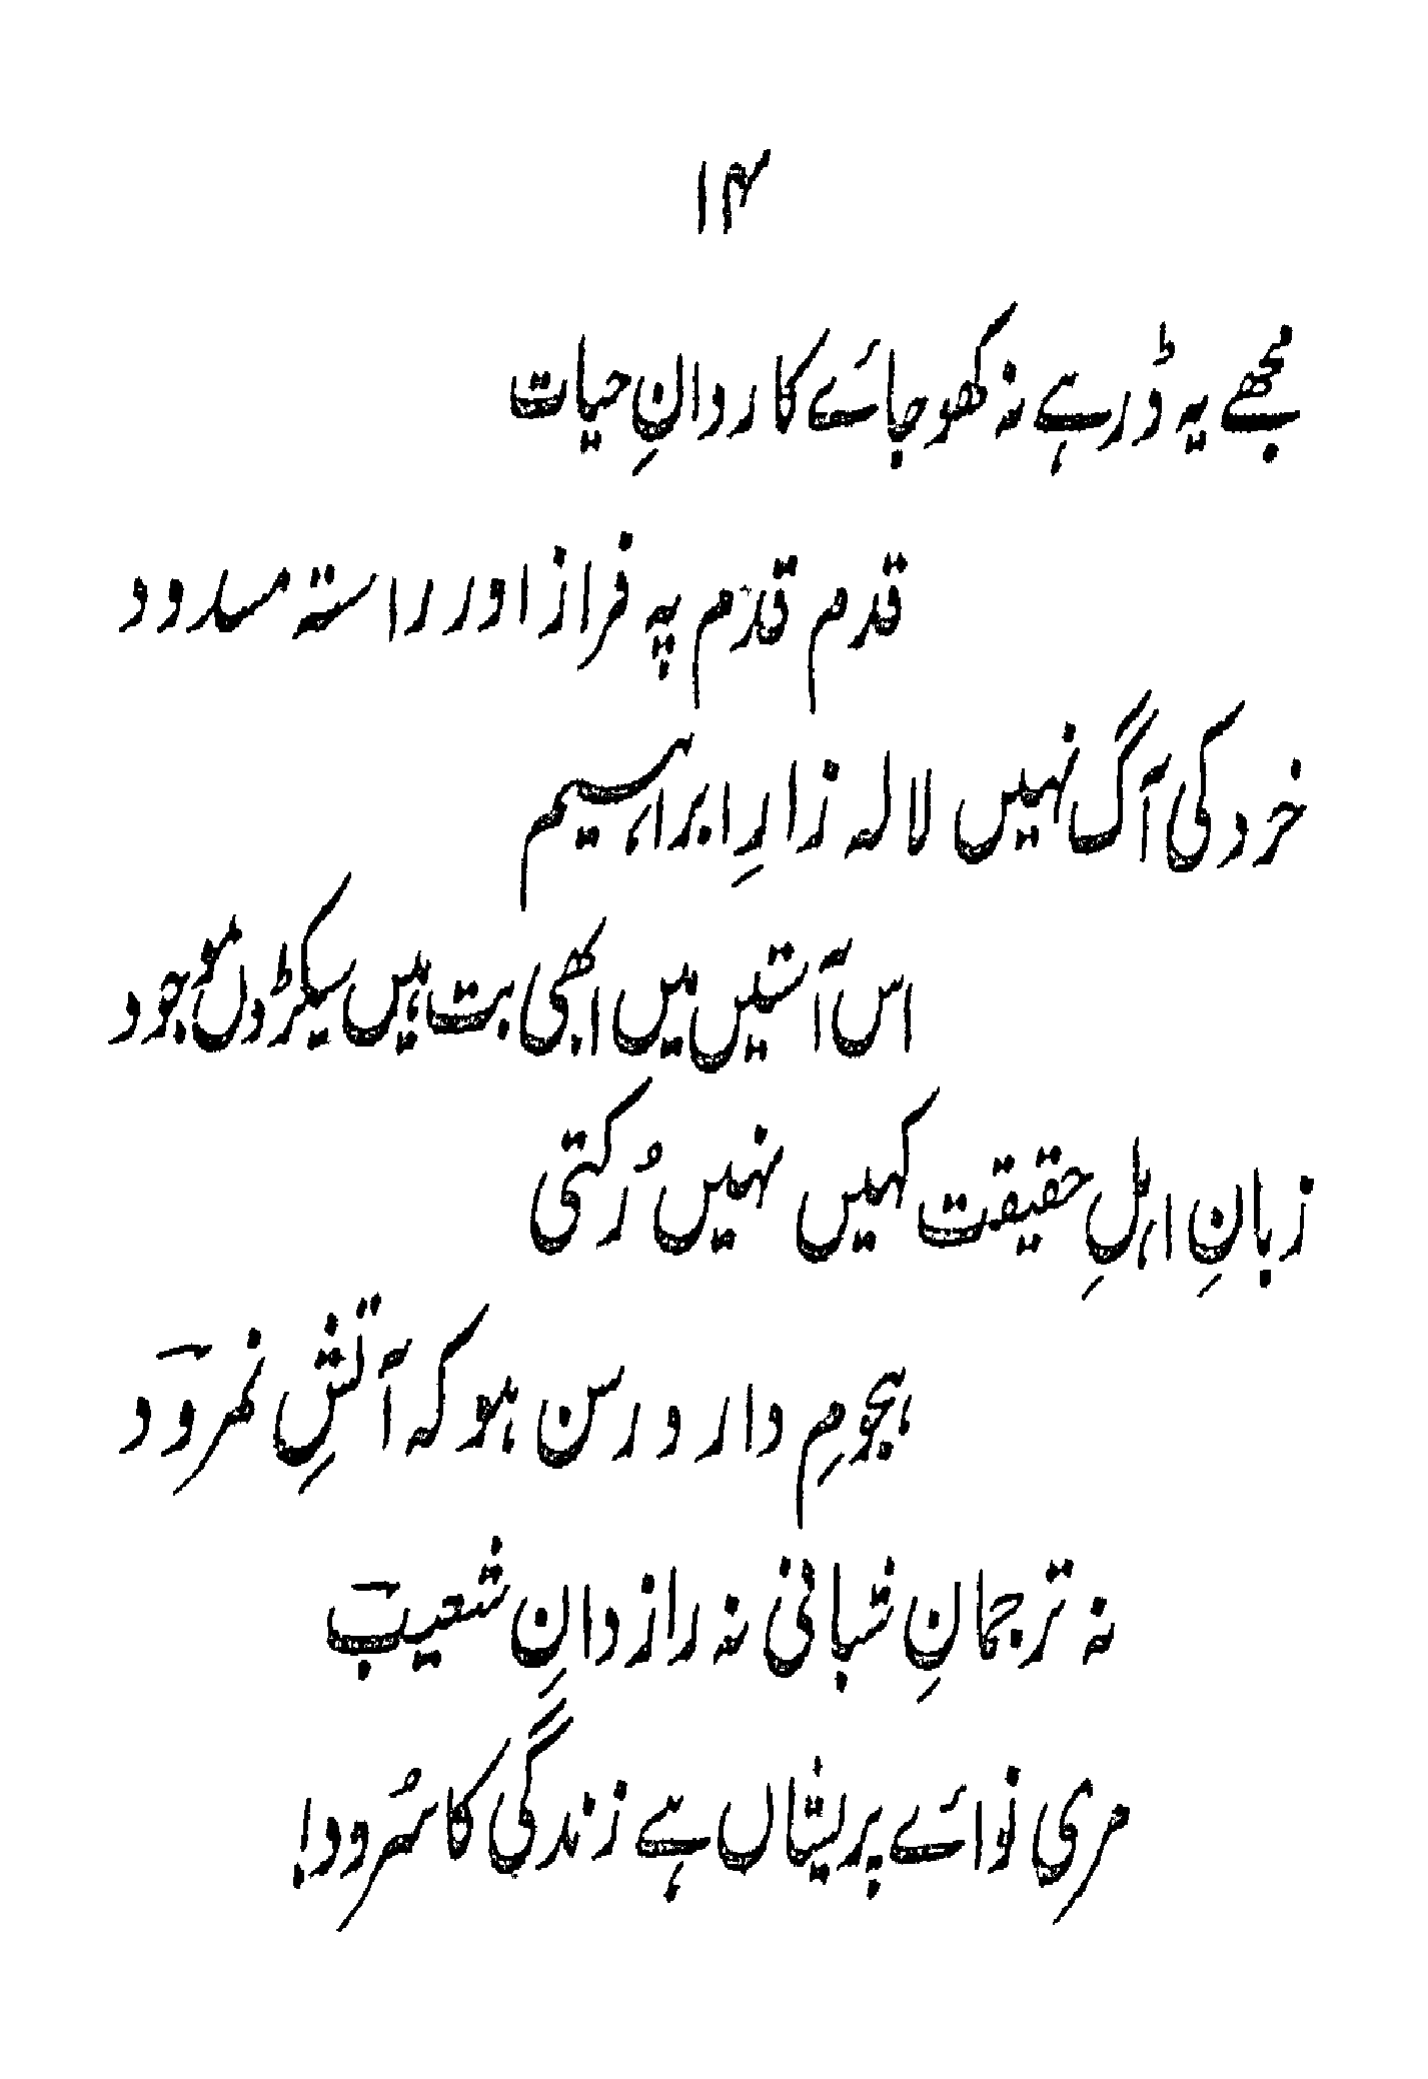 ۱۴
مجھے یہ ڈر ہے نہ کھو جائے کاروانِ حیات
قدم قدم پہ فراز اور راستہ مسدود
خرد کی آگ نہیں لالہ زارِ ابراہیم
اس آستیں میں ابھی بت ہیں سیکڑوں موجود
زبانِ اہلِ حقیقت کہیں نہیں رُکتی
ہجومِ دار و رسن ہو کہ آتشِ نمرود
نہ ترجمانِ شبانی نہ رازدانِ شعیب
مری نوائے پریشاں ہے زندگی کا سُرود!